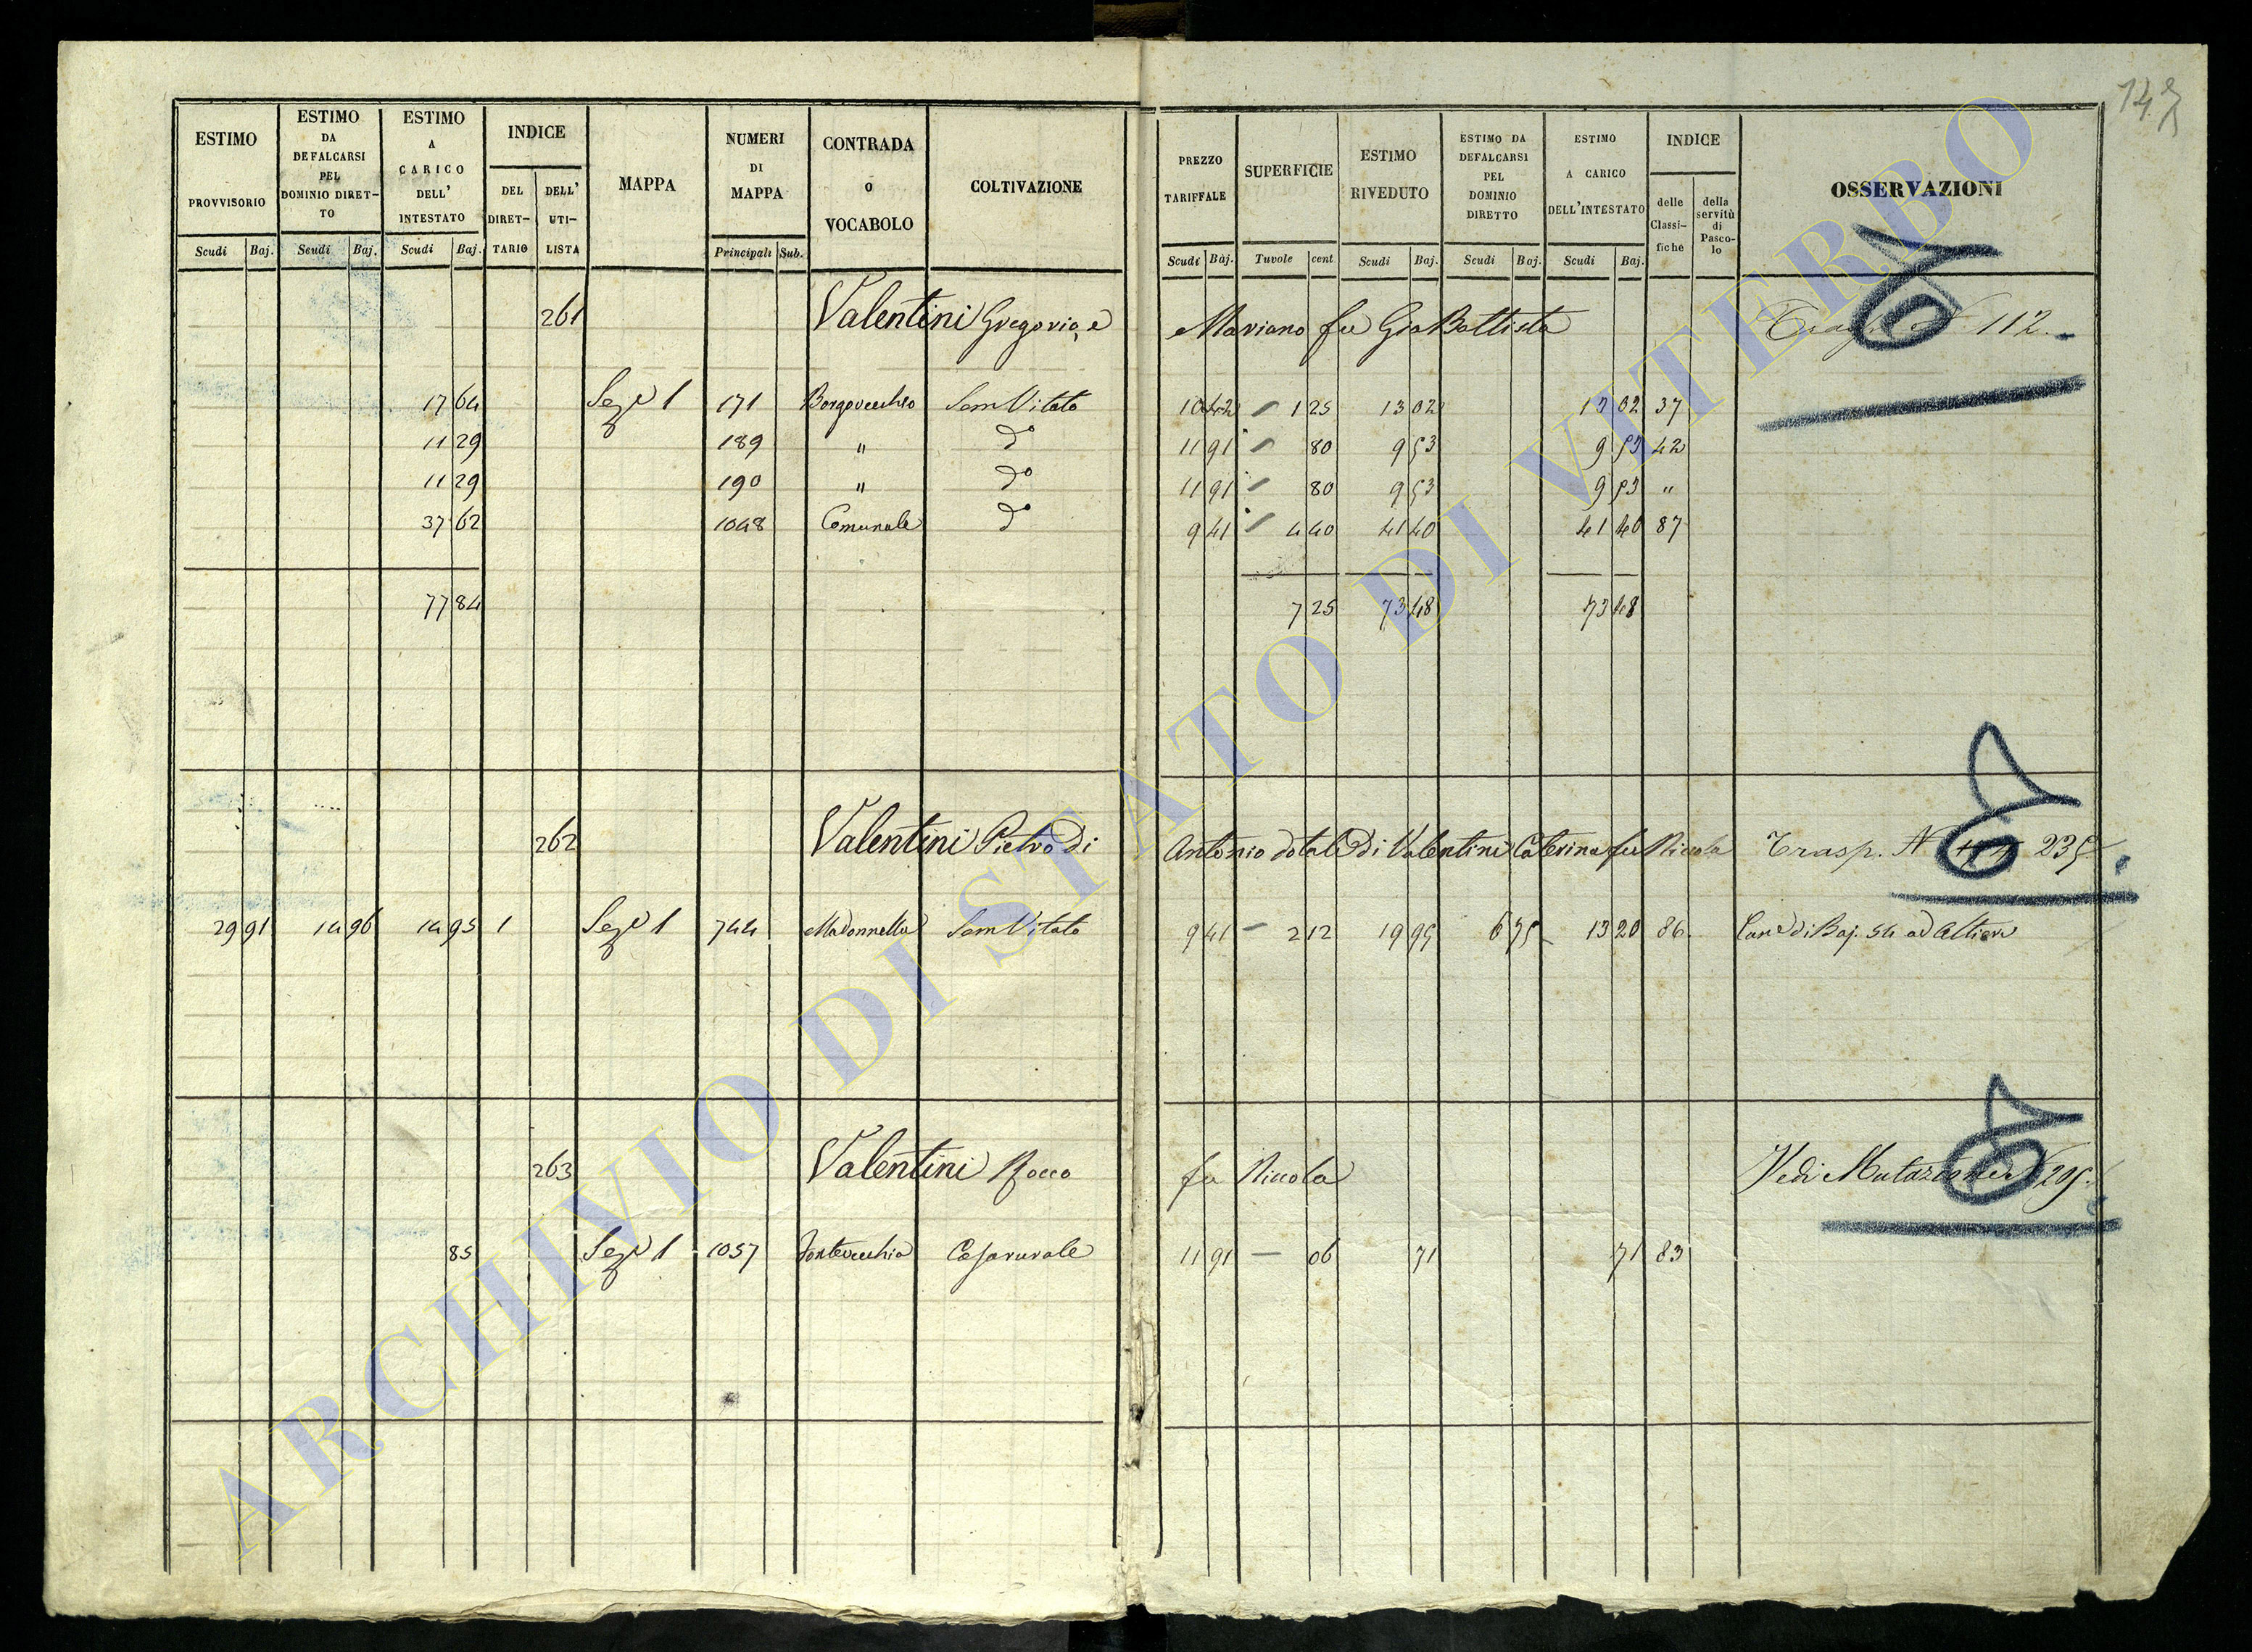 148
ESTIMO PROVVISORIO Scudi Baj.
ESTIMO DA DEFALCARSI PEL DOMINIO DIRETTO Scudi Baj.
ESTIMO A CARICO DELL' INTESTATO Scudi Baj.
INDICE DEL DIRETTARIO DELL' UTILISTA
MAPPA
NUMERI DI MAPPA Principali Sub.
CONTRADA O VOCABOLO
COLTIVAZIONE
PREZZO TARIFFALE Scudi Baj.
SUPERFICIE Tavole cent
ESTIMO RIVEDUTO Scudi Baj.
ESTIMO DA DEFALCARSI PEL DOMINIO DIRETTO Scudi Baj.
ESTIMO A CARICO DELL'INTESTATO Scudi Baj.
INDICE delle Classifiche della servitù di Pascolo
OSSERVAZIONI
261 Valentini Gregorio, e Mariano fu Gio Battista 112.
17 64 Sez.e 1 171 Borgovecchio Sem Vitato 10 42 1 25 13 02 13 02 37
11 29 189 " do 11 91 80 9 53 9 53 42
11 29 190 " do 11 91 80 9 53 9 53 "
37 62 1048 Comunale do 9 41 4 40 41 40 41 40 87
77 84 7 25 73 48 73 48
262 Valentini Pietro di Antonio dotale di Valentini Caterina fu Niccola Trasp. N 235.
29 91 14 96 14 95 1 Sez.e 1 744 Madonnella Sem Vitato 9 41 — 2 12 19 95 6 75 13 20 86. Can.e di Baj. 54 ad Altieri
263 Valentini Rocco fu Niccola Vedi Mutazione N 205.
85 Sez.e 1 1057 Fontevecchia Casa rurale 11 91 — 06 71 71 83
ARCHIVIO DI STATO DI VITERBO